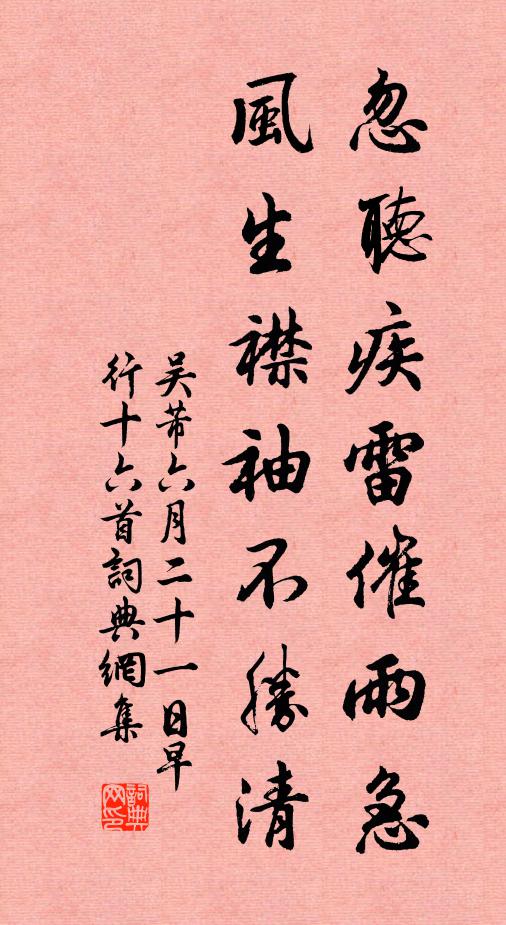 忽聽疾雷催雨急
風生襟袖不勝清
吴芾六月二十一日早
行十六首詞典網集
詞典
网印